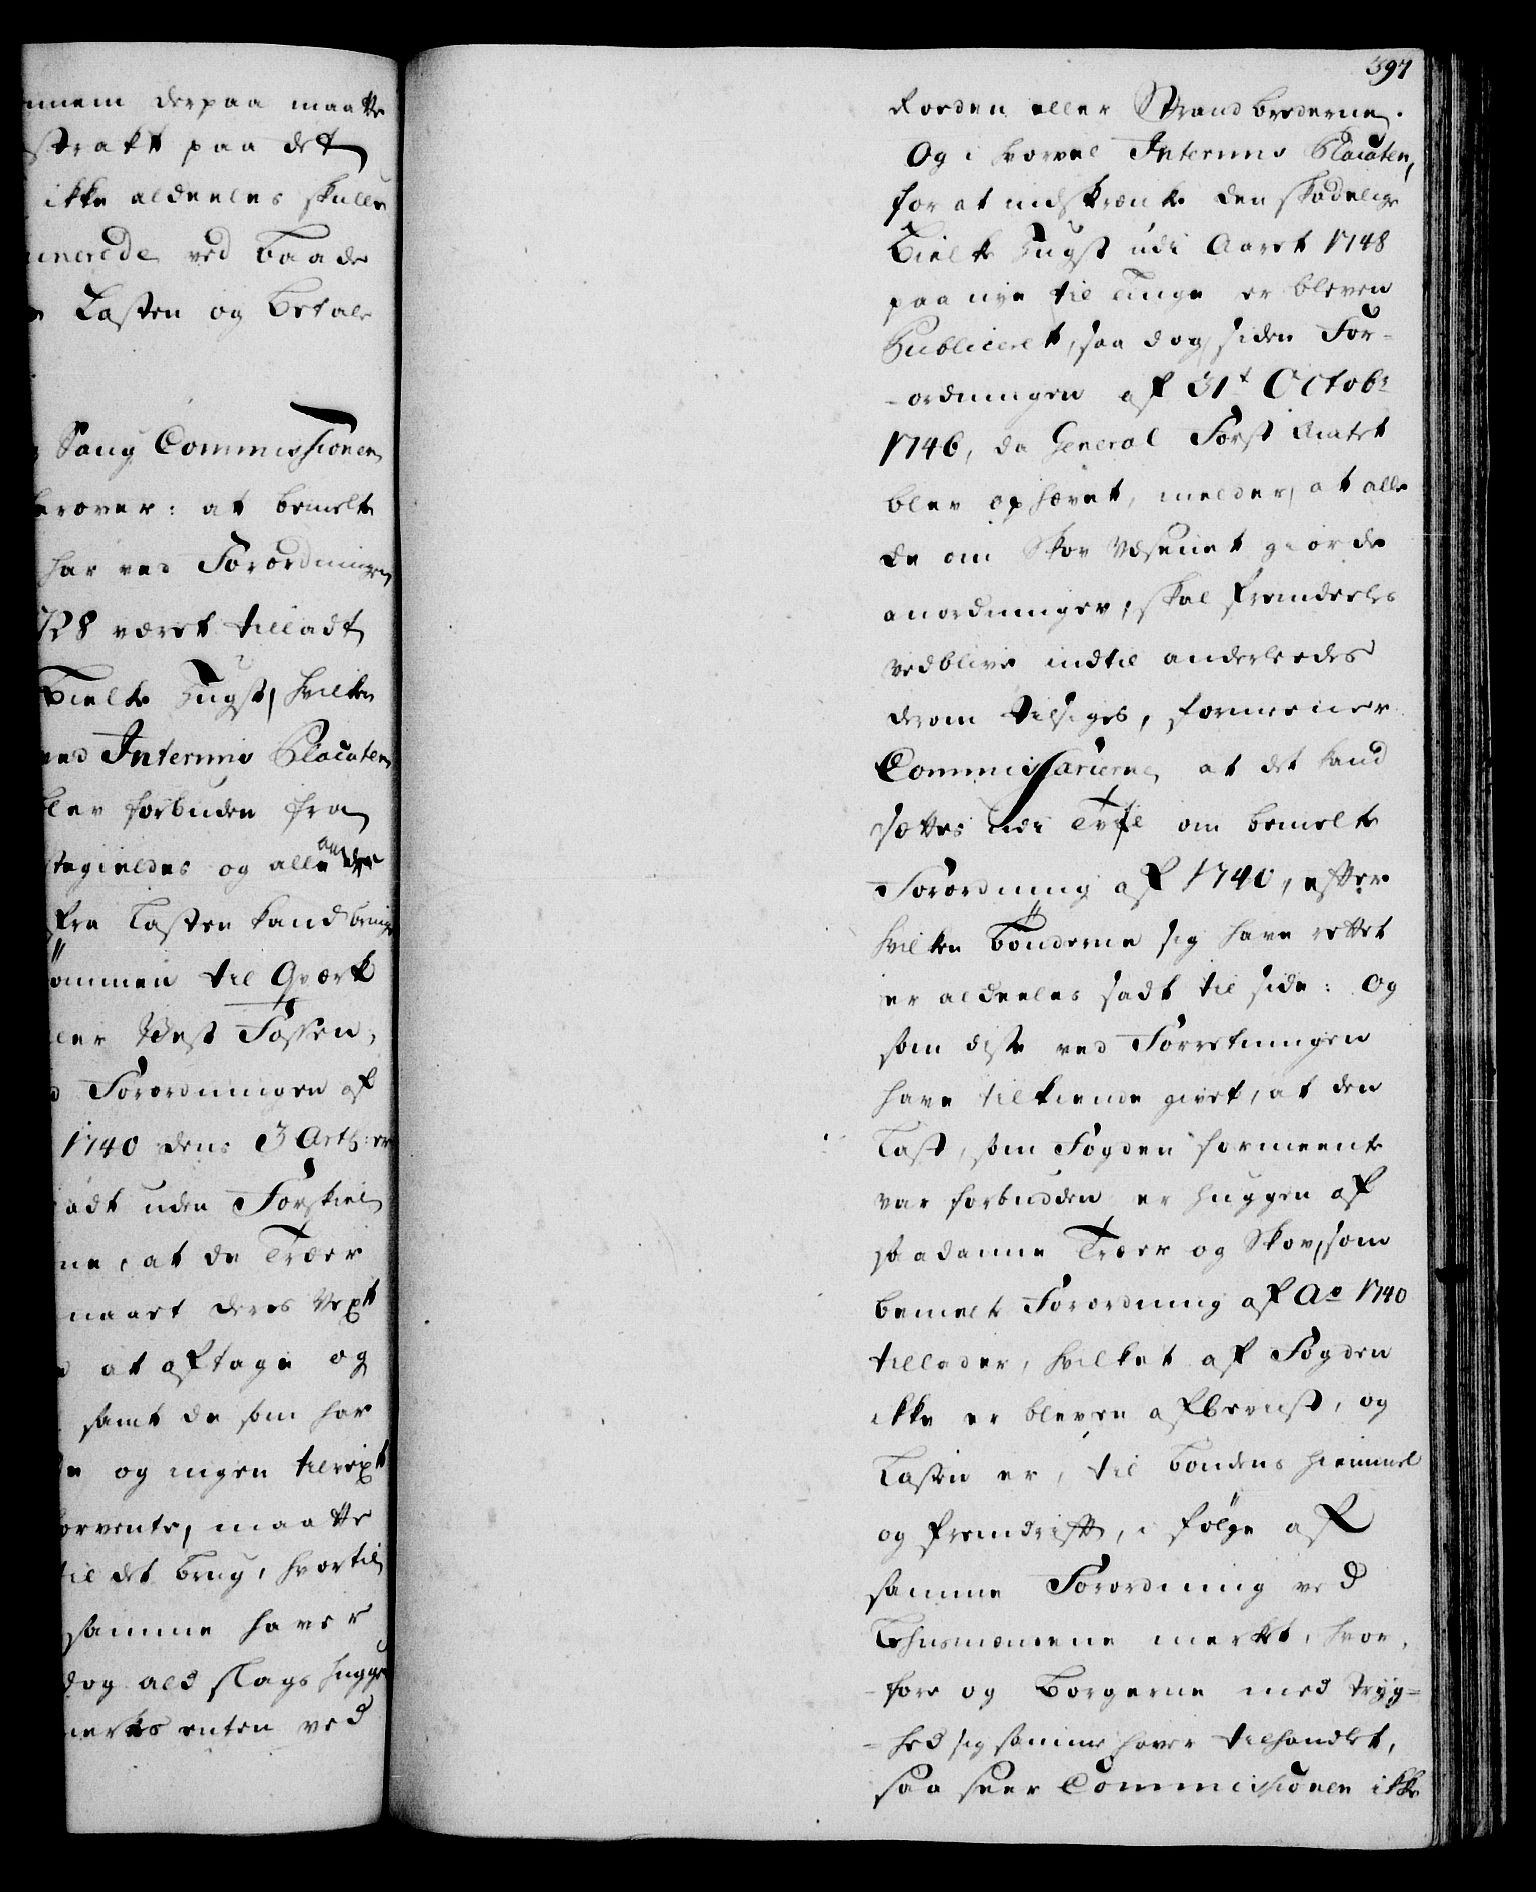 nnem derpaa maatte
strakt paa det
ikke aldeeles skulle
inerede ved baade
Lasten og betale
Saug Commissionen
herover: at bemelte
har ved Forordningen
1728 været tilladt
Bielke Hugst, hvilken
ved Interims Placaten
blev forbuden fra
stegieldes og alle andre
fra Lasten kand bringe
ömmen til Qværk
ller Vest Fossen,
d Forordningen af
1740 dens 3 Art: er
adt uden Forskiel
ne, at de Træer
naaet deres Vext
at aftage og
samt de som har
og ingen tilvext
forvente, maatte
til det brug, hvortil
samme haver
dog ald slags hugge
merkes enten ved
397
Roeden eller Strandbrederne.
Og i hvorvel Interims Placaten,
for at indskrænke den skadelige
Bielke Hugst udi Aaret 1748
paa nye til Tinge er bleven
Publiceret, saa dog, siden For-
-ordningen af 31t Octobr
1746, da General Forst Amtet
blev ophævet, melder, at alle
de om Skov Væsenet giorde
anordninger, skal fremdeeles
vedblive indtil anderleedes
derom tilsiges, formeener
Commissarierne, at det kand
sættes udi Tvfl om bemelte
Forordning af 1740, efter
hvilken Bönderne sig have rettet
er aldeeles sadt til side: Og
som disse ved Forretningen
have tilkiende givet, at den
Last, som Fogden formeente
var forbudden er huggen af
saadanne Træer og Skov, som
bemelte Forordning af Ao 1740
tillader, hvilket af Fogden
ikke er bleven afbeviist, og
Lasten er, til Bondens hiemmel
og fremdrift, i følge af
samme Forordning ved
Lehnsmændene merket, hvor-
-fore og Borgerne med Tryg-
-hed sig samme haver tilhandlet,
saa seer Commissionen ikke